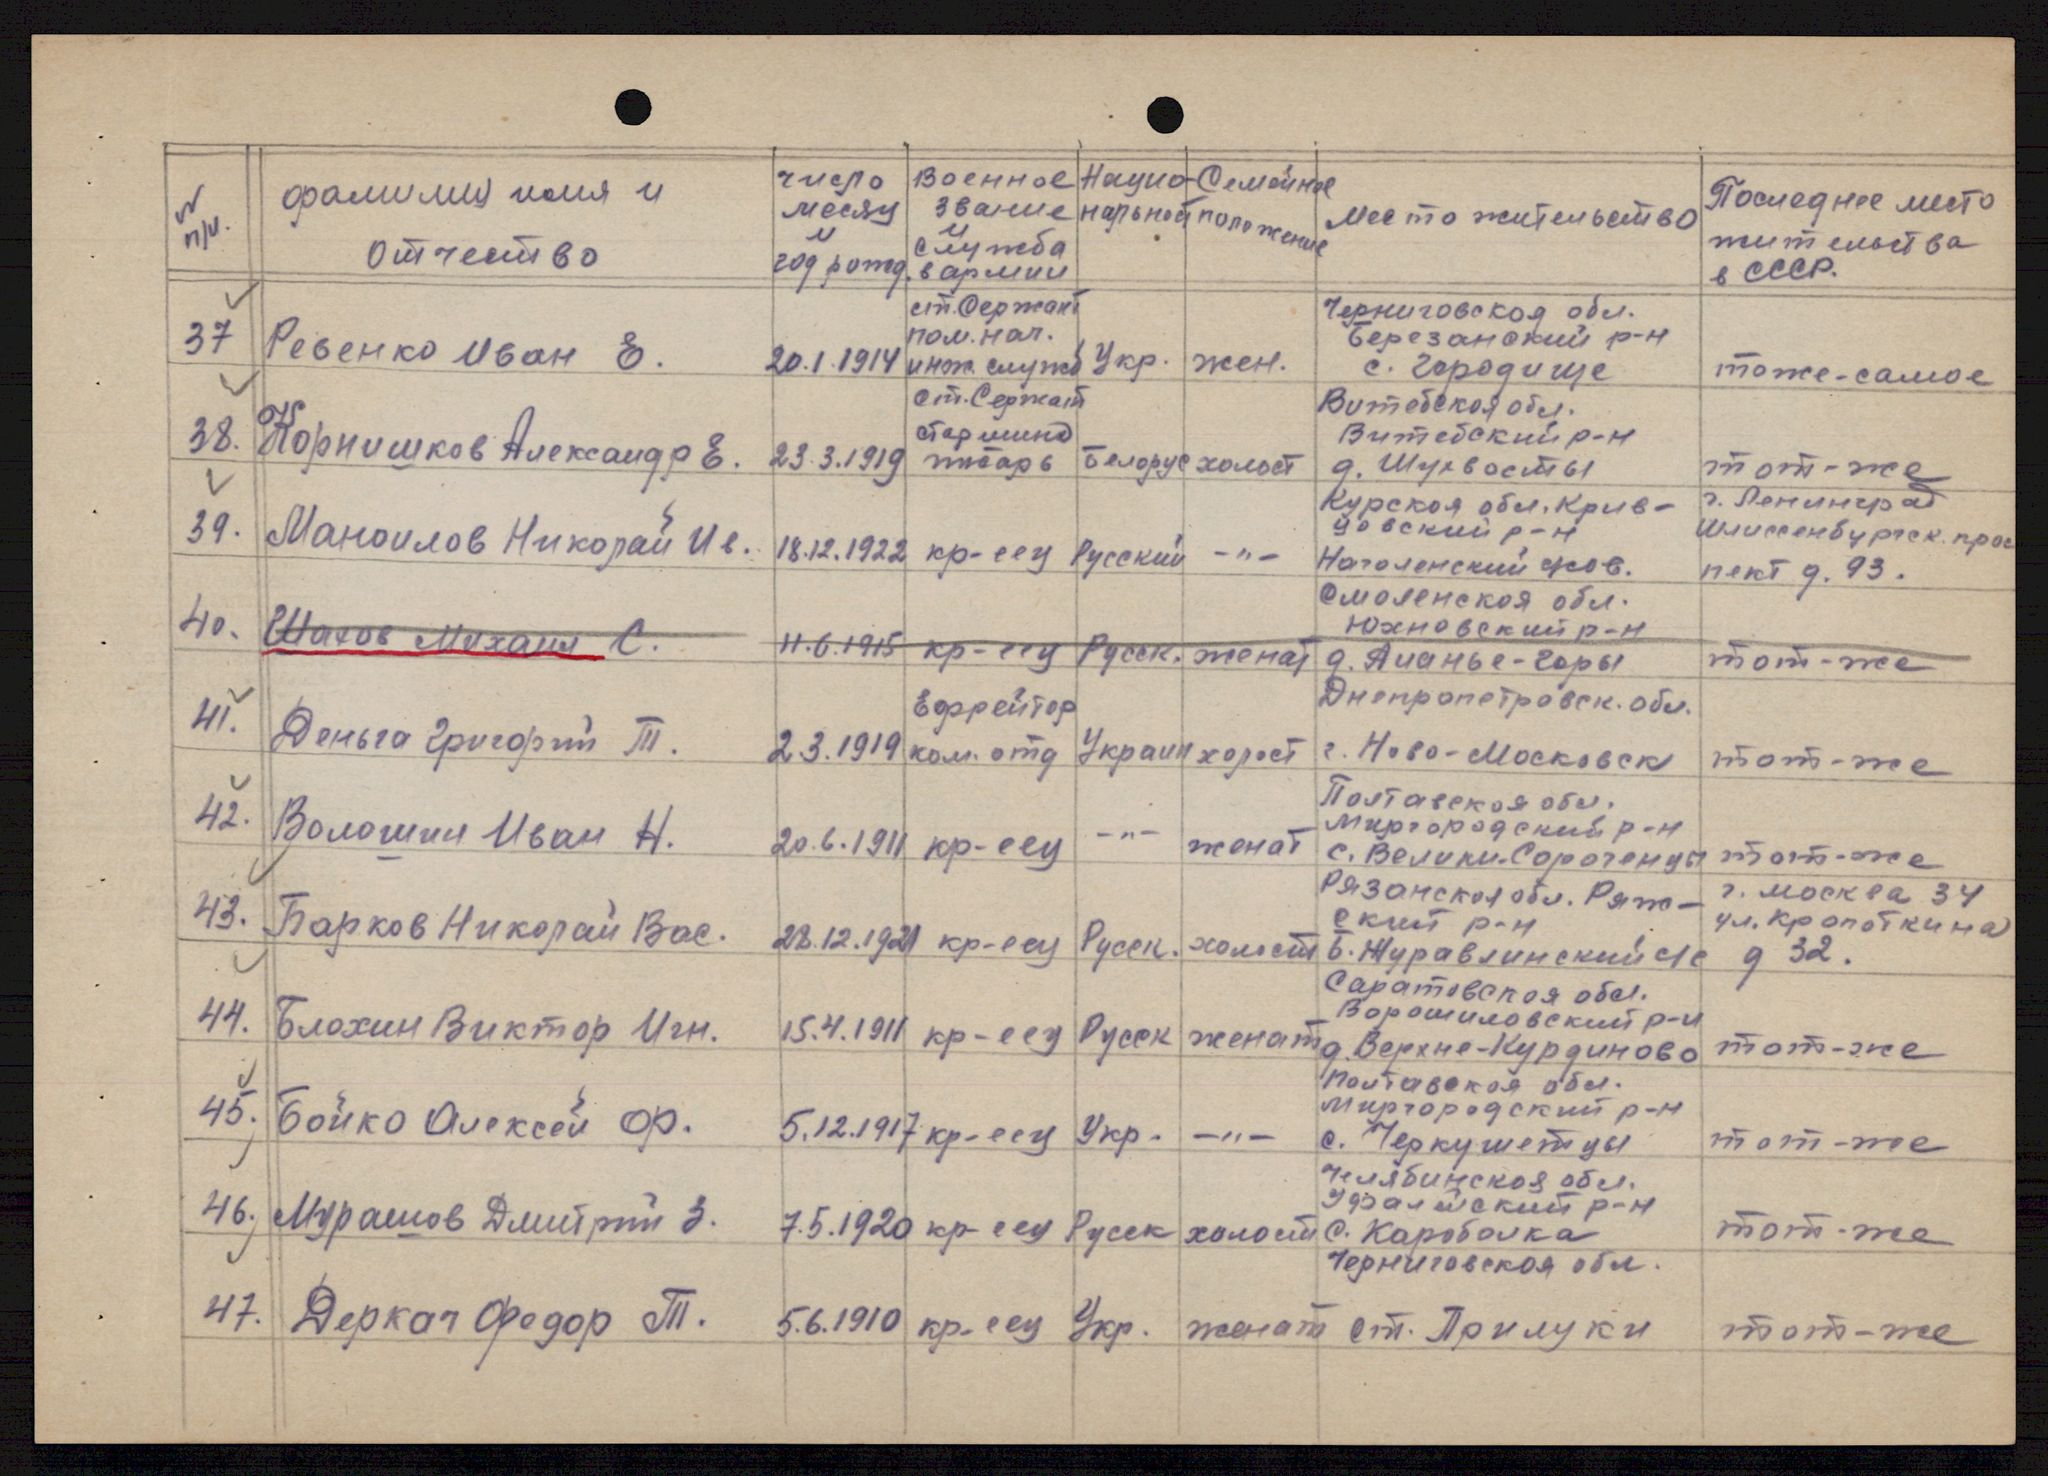 № п/п.
фамилия имя и отчество
число месяц и год рожд.
Военное звание и служба в армии
Национальной
Семейное положение
Место жительство
Последнее место жительства в СССР.
37 Ревенко Иван Е. 20.1.1914 ст. Сержант пом. нач. инж. служб Укр. жен. Черниговская обл. Березанский р-н с. Городище тоже-самое
38. Корнишков Александр Е. 23.3.1919 ст. Сержант старшина Белорус холост Витебская обл. Витебский р-н д. тот-же
39. Маноилов Николай Ив. 18.12.1922 кр-еец Русский -"- Курская обл. Кривцовский р-н г. Ленинград Шлиссенбургск. проспект д. 93.
40. Шахов Михаил С. 11.6.1915 кр-еец Русск. женат Смоленская обл. Юхновский р-н д. Ананье-Горы тот-же
41. Деньга Григорий Т. 2.3.1919 Ефрейтор ком. отд Украин холост Днепропетровск. обл. г. Ново-Московск тот-же
42. Волошин Иван Н. 20.6.1911 кр-еец -"- женат Полтавская обл. Миргородский р-н с. Велики-Сороченцы тот-же
43. Барков Николай Вас. 28.12.1921 кр-еец Русск. холост Рязанская обл. Ряжский р-н Б. Журавлинский с/с г. Москва 34 ул. Кропоткина д 32.
44. Блохин Виктор Игн. 15.4.1911 кр-еец Русск женат Саратовская обл. Ворошиловский р-н д. Верхне-Курдиново тот-же
45. Бойко Алексей Ф. 5.12.1917 кр-еец Укр. -"- Полтавская обл. Миргородский р-н с. Черкушетцы тот-же
46. Мурашов Дмитрий З. 7.5.1920 кр-еец Русск холост Челябинская обл. Уфалейский р-н с. Караболка тот-же
47. Деркач Федор Т. 5.6.1910 кр-еец Укр. женат Черниговская обл. ст. Прилуки тот-же